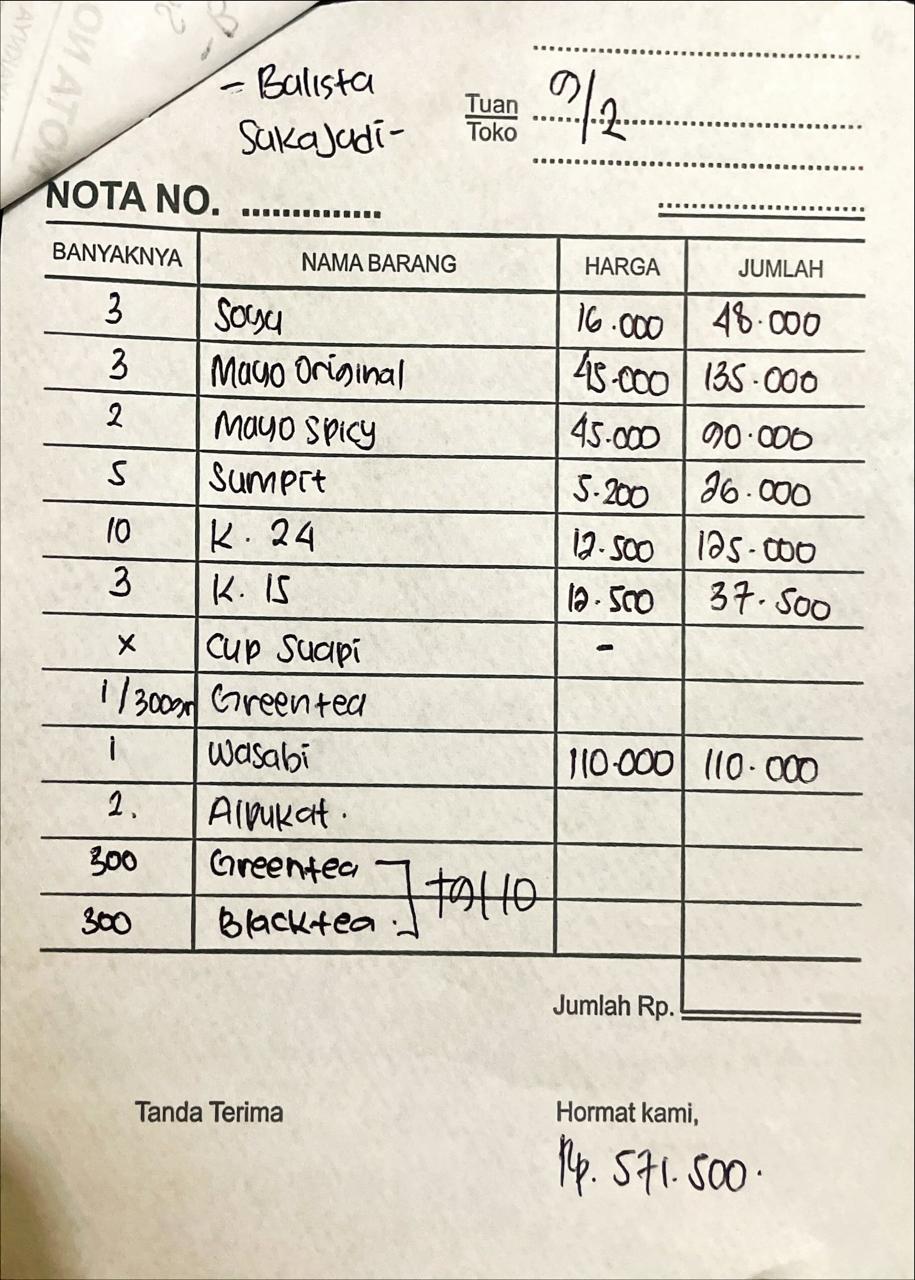 - Balista
Sukajadi -
Tuan
Toko
9/2
NOTA NO.
BANYAKNYA NAMA BARANG HARGA JUMLAH
3 Soya 16.000 48.000
3 Mayo Original 45.000 135.000
2 Mayo Spicy 45.000 90.000
5 Sumpit 5.200 26.000
10 K. 24 12.500 125.000
3 K. 15 12.500 37.500
x Cup Suapi -
1/300gr Greentea
1 Wasabi 110.000 110.000
2. Alpukat.
300 Greentea
300 Blacktea.
Jumlah Rp.
Tanda Terima Hormat kami,
Rp. 571.500.